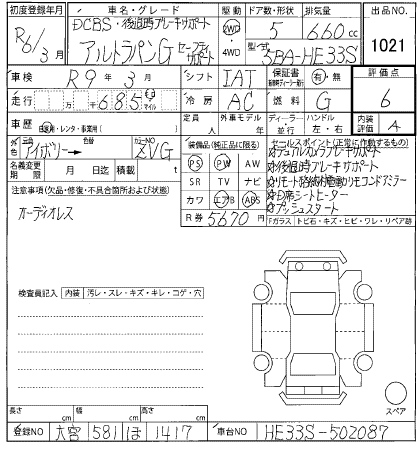 初度登録年月 車名・グレード 駆動 ドア数・形状 排気量 出品NO.
R6/3月 DCBS・後退時ブレーキサポート 2WD 5 660 cc 1021
アルトラパンG セーフティサポート 4WD 型式 5BA-HE33S
車検 R9年3月 シフト IAT 保証書 有・無 評価点
走行 685 冷房 AC 燃料 G 6
車歴 自家用・レンタ・事業用( ) 定員 人 外車モデル 年 ディーラー 並行 ハンドル 左・右 内装評価 A
外色 元色 アイボリー 色替 カラーNO ZVG 装備品(純正品に限る) セールスポイント(正常に作動するもの)
名義変更期限 月 日迄 積載 t PS PW AW ☆デュアルカメラブレーキサポート
☆後退時ブレーキサポート
注意事項(欠品・修復・不具合箇所および状態) SR TV ナビ ☆リモート格納電動リモコンドアミラー
オーディオレス カワ エアB ABS ☆D席シートヒーター
☆プッシュスタート
R券 5670 円 Fガラス トビ石・キズ・ヒビ・ワレ・リペア跡
検査員記入 内装 汚レ・スレ・キズ・キレ・コゲ・穴
スペア
長さ cm 幅 cm 高さ cm
登録NO 大宮 581 ほ 1417 車台NO HE33S-502087